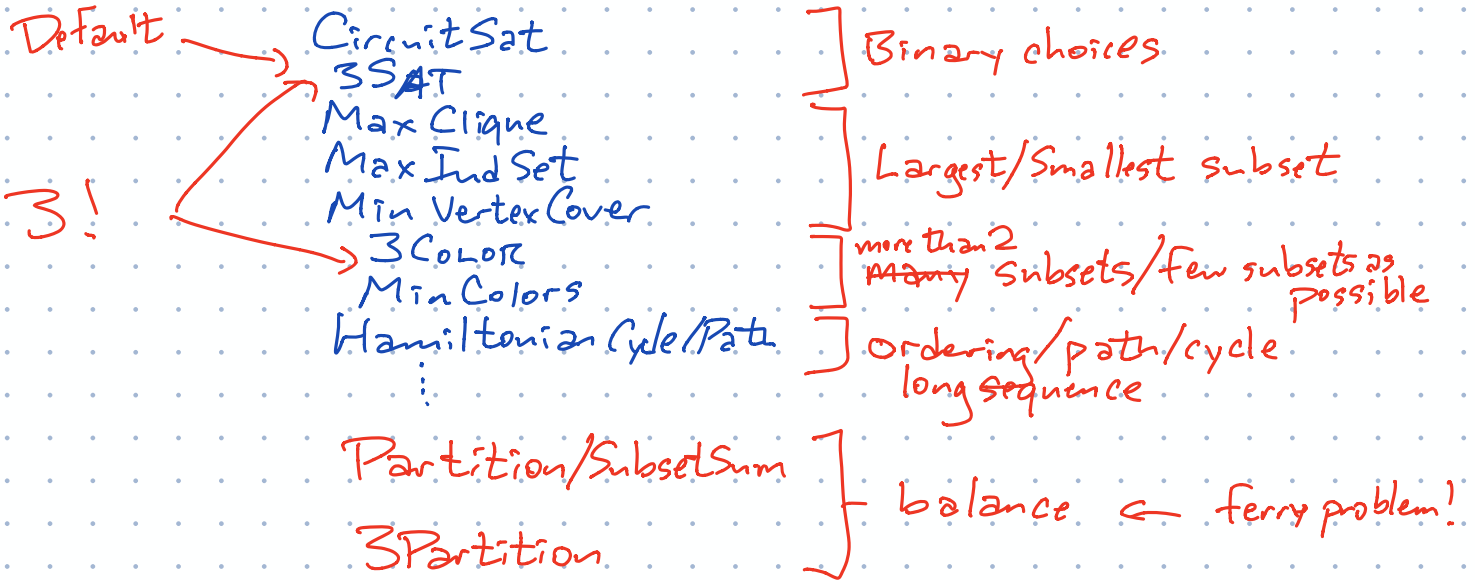 Default
CircuitSat
3SAT
Max Clique
Max Ind Set
Min Vertex Cover
3!
3COLOR
MinColors
Hamiltonian Cycle/Path
Partition/SubsetSum
3Partition
Binary choices
Largest/Smallest subset
more than 2
Many subsets/few subsets as
possible
ordering/path/cycle
long sequence
balance ← ferry problem!